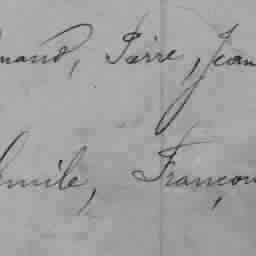 mand, Pierre, Jean
Emile, Françoi